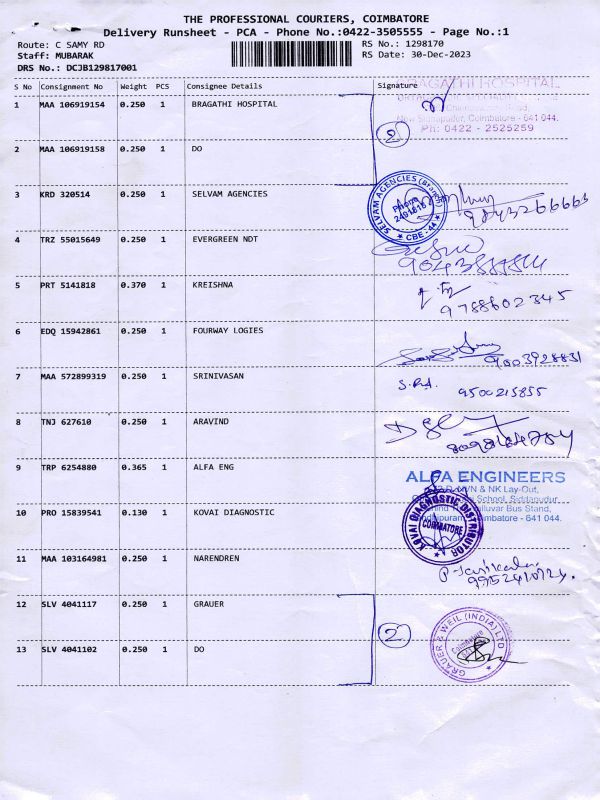 THE PROFESSIONAL COURIERS, COIMBATORE
Delivery Runsheet - PCA - Phone No.:0422-3505555 - Page No.:1
Route: C SAMY RD
Staff: MUBARAK
DRS No.: DCJB129817001
RS No.: 1298170
RS Date: 30-Dec-2023
S No Consignment No Weight PCS Consignee Details Signature
BRAGATHI HOSPITAL
1 MAA 106919154 0.250 1 BRAGATHI HOSPITAL
Coimbatore - 641 044.
Ph: 0422 - 2525259
2
2 MAA 106919158 0.250 1 DO
3 KRD 320514 0.250 1 SELVAM AGENCIES
SELVAM AGENCIES (Branch)
Phone
CBE - 44
9843266663
4 TRZ 55015649 0.250 1 EVERGREEN NDT
5 PRT 5141818 0.370 1 KREISHNA
9788602345
6 EDQ 15942861 0.250 1 FOURWAY LOGIES
9003928831
7 MAA 572899319 0.250 1 SRINIVASAN
9500215855
8 TNJ 627610 0.250 1 ARAVIND
9 TRP 6254880 0.365 1 ALFA ENG
ALFA ENGINEERS
& NK Lay-Out,
School, Siddapudur,
Bus Stand,
Coimbatore - 641 044.
10 PRO 15839541 0.130 1 KOVAI DIAGNOSTIC
KOVAI DIAGNOSTIC DISTRIBUTOR
COIMBATORE
11 MAA 103164981 0.250 1 NARENDREN
12 SLV 4041117 0.250 1 GRAUER
2
GRAUER & WEIL (INDIA) LTD
Coimbatore
13 SLV 4041102 0.250 1 DO